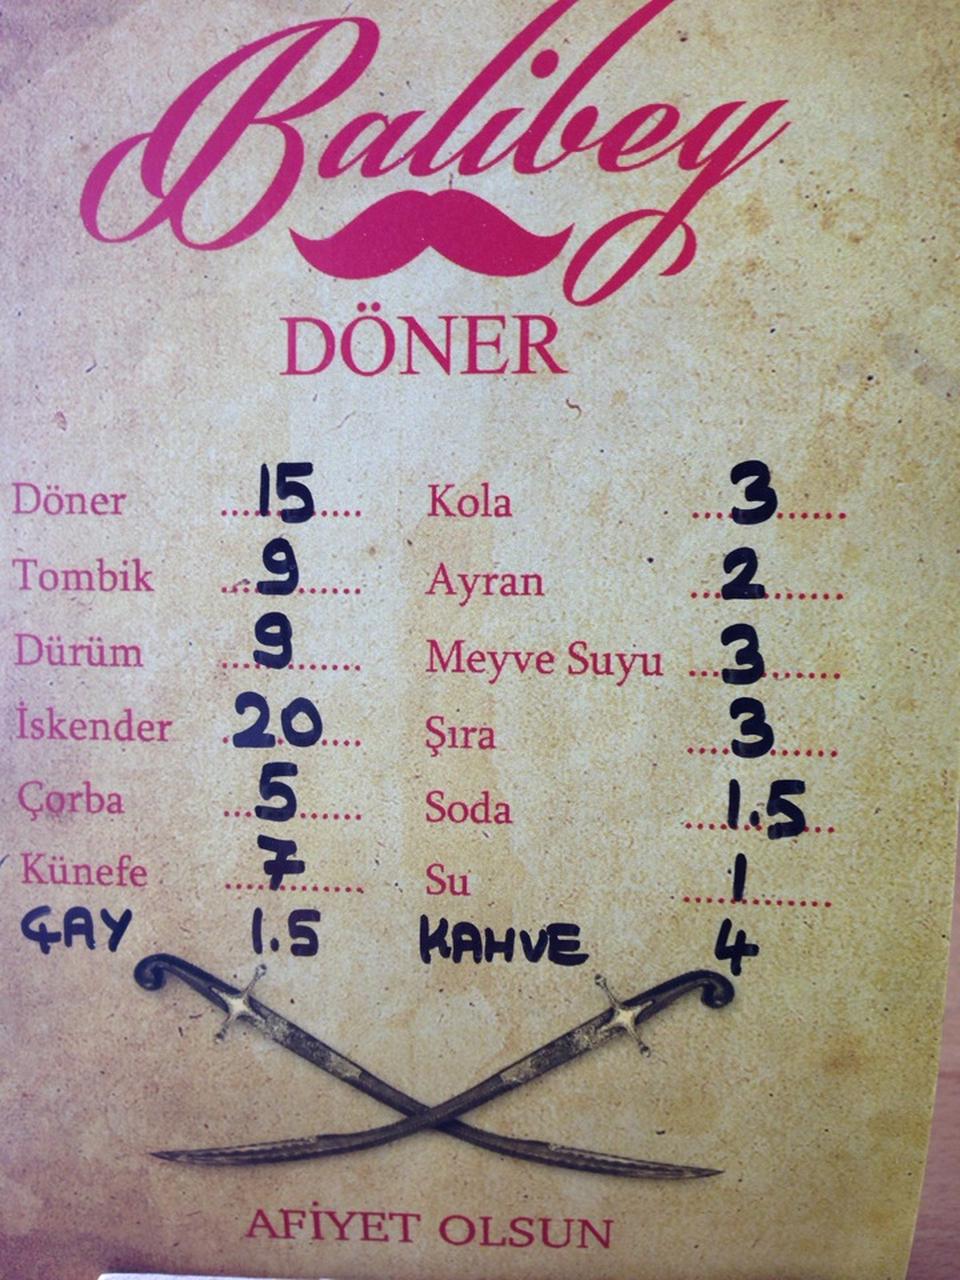 Balibey
DÖNER
Döner ..... 15 ..... Kola ..... 3 .....
Tombik ..... 9 ..... Ayran ..... 2 .....
Dürüm ..... 9 ..... Meyve Suyu ..... 3 .....
İskender ..... 20 ..... Şıra ..... 3 .....
Çorba ..... 5 ..... Soda ..... 1.5 .....
Künefe ..... 7 ..... Su ..... 1 .....
ÇAY 1.5 KAHVE 4
AFİYET OLSUN